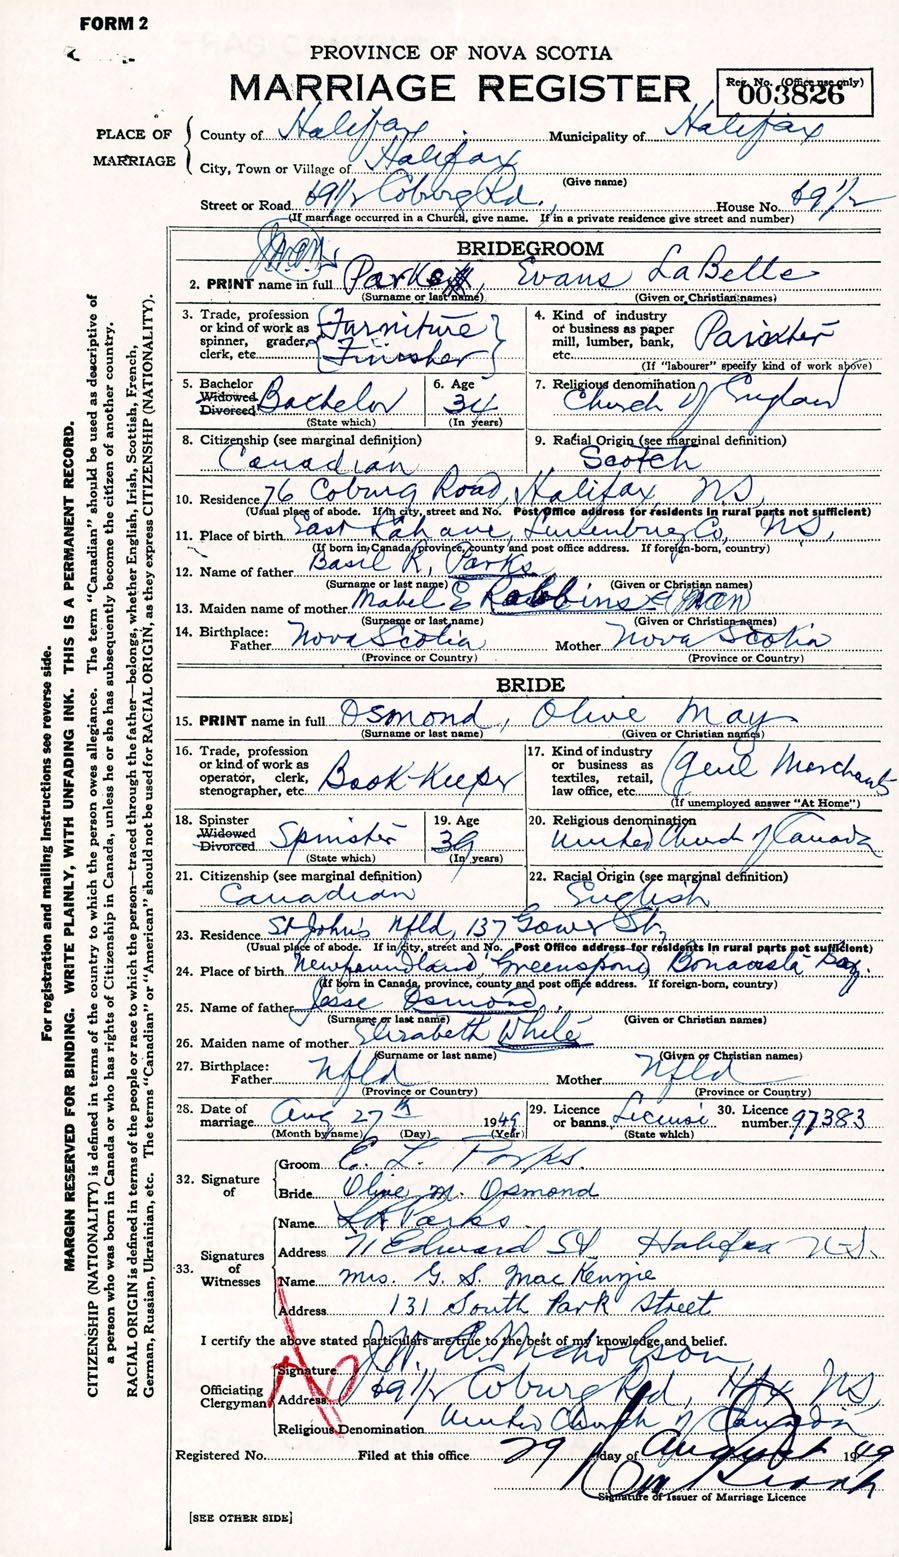 FORM 2
PROVINCE OF NOVA SCOTIA
MARRIAGE REGISTER
Reg. No. (Office use only)
003826
PLACE OF MARRIAGE
County of Halifax Municipality of Halifax
City, Town or Village of Halifax
(Give name)
Street or Road 69 1/2 Coburg Rd., House No. 69 1/2
(If marriage occurred in a Church, give name. If in a private residence give street and number)
BRIDEGROOM
2. PRINT name in full Parks, Evans LaBelle
(Surname or last name) (Given or Christian names)
3. Trade, profession or kind of work as spinner, grader, clerk, etc. Furniture Finisher
4. Kind of industry or business as paper mill, lumber, bank, etc. Painter
(If "labourer" specify kind of work above)
5. Bachelor Widowed Divorced Bachelor
(State which)
6. Age 34
(In years)
7. Religious denomination Church of England
8. Citizenship (see marginal definition) Canadian
9. Racial Origin (see marginal definition) Scotch
10. Residence 76 Coburg Road, Halifax, NS,
(Usual place of abode. If in city, street and No. Post Office address for residents in rural parts not sufficient)
11. Place of birth East Lahave, Lunenburg Co, NS,
(If born in Canada, province, county and post office address. If foreign-born, country)
12. Name of father Basil R. Parks
(Surname or last name) (Given or Christian names)
13. Maiden name of mother Mabel E Robbins
(Surname or last name) (Given or Christian names)
14. Birthplace: Father Nova Scotia Mother Nova Scotia
(Province or Country) (Province or Country)
BRIDE
15. PRINT name in full Osmond, Olive May
(Surname or last name) (Given or Christian names)
16. Trade, profession or kind of work as operator, clerk, stenographer, etc. Book-Keeper
17. Kind of industry or business as textiles, retail, law office, etc. Genl Merchants
(If unemployed answer "At Home")
18. Spinster Widowed Divorced Spinster
(State which)
19. Age 39
(In years)
20. Religious denomination United Church of Canada
21. Citizenship (see marginal definition) Canadian
22. Racial Origin (see marginal definition) English
23. Residence St John's Nfld, 137 Gower St,
(Usual place of abode. If in city, street and No. Post Office address for residents in rural parts not sufficient)
24. Place of birth Newfoundland, Greenspond, Bonavista Bay.
(If born in Canada, province, county and post office address. If foreign-born, country)
25. Name of father Jesse Osmond,
(Surname or last name) (Given or Christian names)
26. Maiden name of mother Elizabeth White
(Surname or last name) (Given or Christian names)
27. Birthplace: Father Nfld Mother Nfld
(Province or Country) (Province or Country)
28. Date of marriage Aug 27th 1949
(Month by name) (Day) (Year)
29. Licence or banns License
(State which)
30. Licence number 97383
32. Signature of
Groom E. L. Parks.
Bride Olive M. Osmond
33. Signatures of Witnesses
Name Parks
Address 71 Edward St Halifax N.S.
Name Mrs. G. S. MacKenzie
Address 131 South Park Street
I certify the above stated particulars are true to the best of my knowledge and belief.
Officiating Clergyman
Signature Nicholson
Address 69 1/2 Coburg Rd, Hfx NS,
Religious Denomination United Church of Canada
Registered No. Filed at this office 29 day of August 1949
Signature of Issuer of Marriage Licence
[SEE OTHER SIDE]
For registration and mailing instructions see reverse side.
MARGIN RESERVED FOR BINDING. WRITE PLAINLY, WITH UNFADING INK. THIS IS A PERMANENT RECORD.
CITIZENSHIP (NATIONALITY) is defined in terms of the country to which the person owes allegiance. The term "Canadian" should be used as descriptive of
a person who was born in Canada or who has rights of Citizenship in Canada, unless he or she has subsequently become the citizen of another country.
RACIAL ORIGIN is defined in terms of the people or race to which the person—traced through the father—belongs, whether English, Irish, Scottish, French,
German, Russian, Ukrainian, etc. The terms "Canadian" or "American" should not be used for RACIAL ORIGIN, as they express CITIZENSHIP (NATIONALITY).